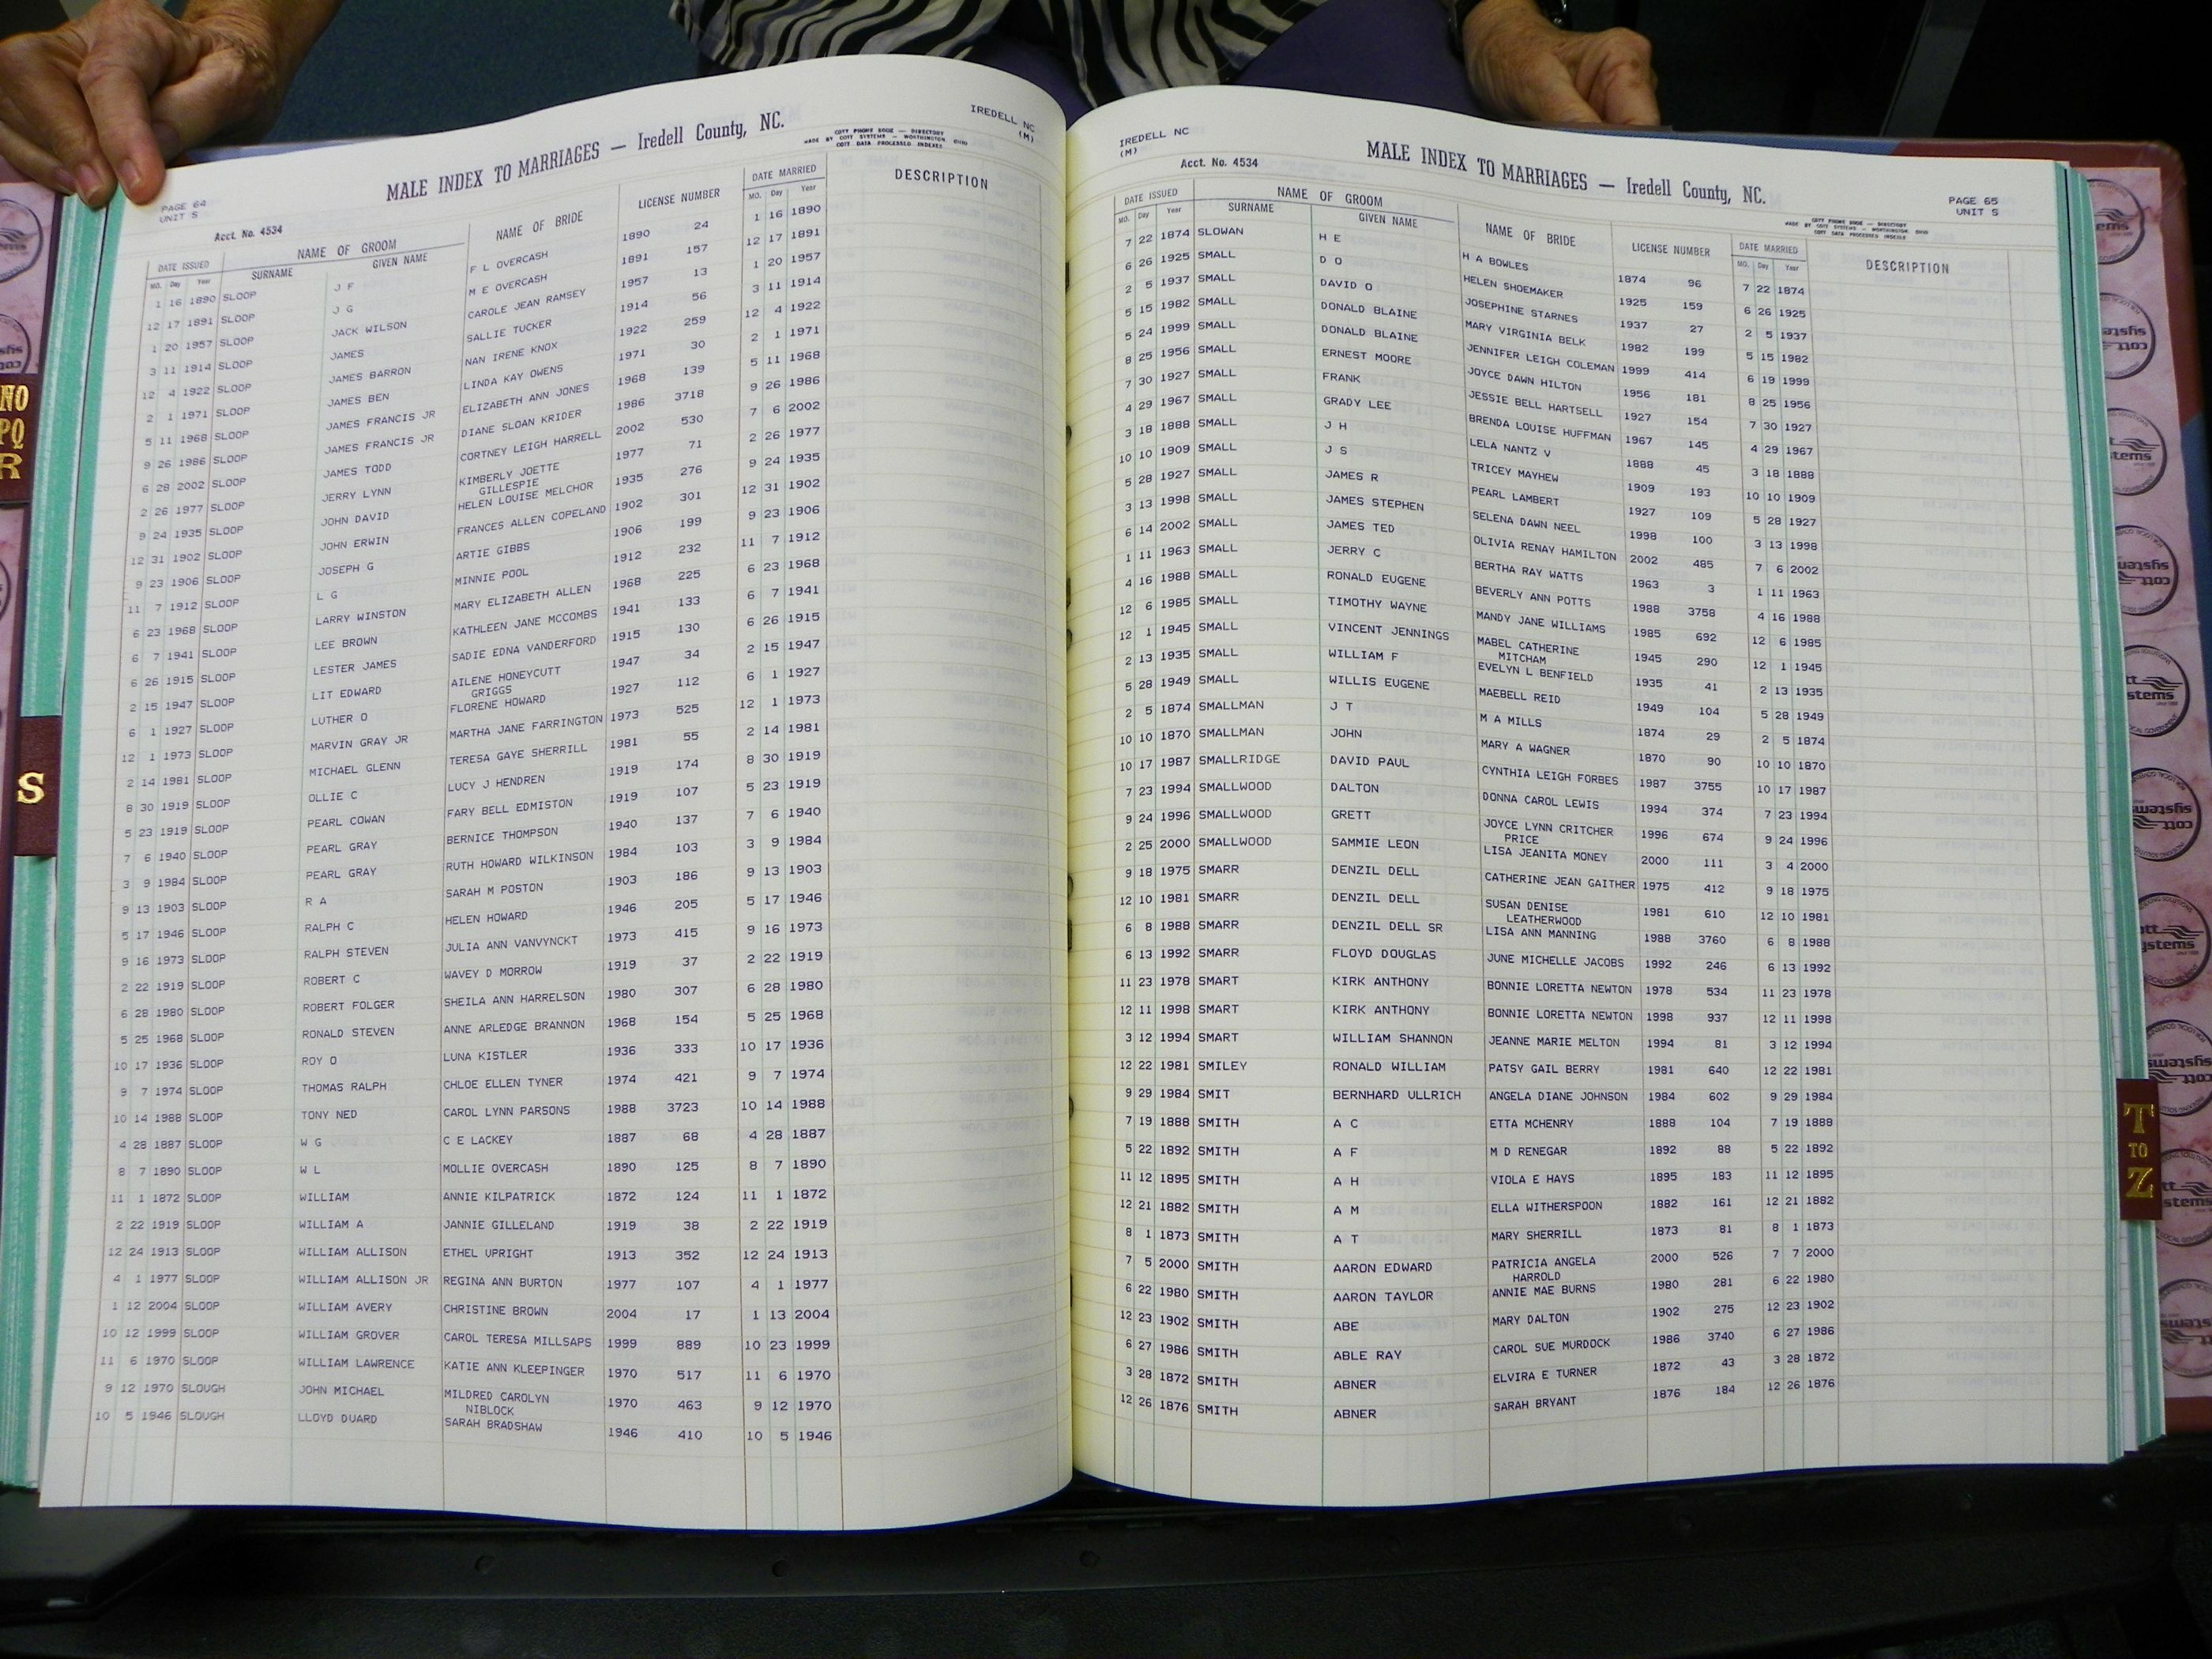 PAGE 64
UNIT S
MALE INDEX TO MARRIAGES — Iredell County, NC.
IREDELL NC
(M)
Acct. No. 4534
COTT PHONE BOOK — DIRECTORY
MADE BY COTT SYSTEMS — WORTHINGTON OHIO
COTT DATA PROCESSED INDEXES
DATE ISSUED NAME OF GROOM NAME OF BRIDE LICENSE NUMBER DATE MARRIED DESCRIPTION
MO. Day Year SURNAME GIVEN NAME MO. Day Year
1 16 1890 SLOOP J F F L OVERCASH 1890 24 1 16 1890
12 17 1891 SLOOP J G M E OVERCASH 1891 157 12 17 1891
1 20 1957 SLOOP JACK WILSON CAROLE JEAN RAMSEY 1957 13 1 20 1957
3 11 1914 SLOOP JAMES SALLIE TUCKER 1914 56 3 11 1914
12 4 1922 SLOOP JAMES BARRON NAN IRENE KNOX 1922 259 12 4 1922
2 1 1971 SLOOP JAMES BEN LINDA KAY OWENS 1971 30 2 1 1971
5 11 1968 SLOOP JAMES FRANCIS JR ELIZABETH ANN JONES 1968 139 5 11 1968
9 26 1986 SLOOP JAMES FRANCIS JR DIANE SLOAN KRIDER 1986 3718 9 26 1986
6 28 2002 SLOOP JAMES TODD CORTNEY LEIGH HARRELL 2002 530 7 6 2002
2 26 1977 SLOOP JERRY LYNN KIMBERLY JOETTE 1977 71 2 26 1977
GILLESPIE
9 24 1935 SLOOP JOHN DAVID HELEN LOUISE MELCHOR 1935 276 9 24 1935
12 31 1902 SLOOP JOHN ERWIN FRANCES ALLEN COPELAND 1902 301 12 31 1902
9 23 1906 SLOOP JOSEPH G ARTIE GIBBS 1906 199 9 23 1906
11 7 1912 SLOOP L G MINNIE POOL 1912 232 11 7 1912
6 23 1968 SLOOP LARRY WINSTON MARY ELIZABETH ALLEN 1968 225 6 23 1968
6 7 1941 SLOOP LEE BROWN KATHLEEN JANE MCCOMBS 1941 133 6 7 1941
6 26 1915 SLOOP LESTER JAMES SADIE EDNA VANDERFORD 1915 130 6 26 1915
2 15 1947 SLOOP LIT EDWARD AILENE HONEYCUTT 1947 34 2 15 1947
GRIGGS
6 1 1927 SLOOP LUTHER O FLORENE HOWARD 1927 112 6 1 1927
12 1 1973 SLOOP MARVIN GRAY JR MARTHA JANE FARRINGTON 1973 525 12 1 1973
2 14 1981 SLOOP MICHAEL GLENN TERESA GAYE SHERRILL 1981 55 2 14 1981
8 30 1919 SLOOP OLLIE C LUCY J HENDREN 1919 174 8 30 1919
5 23 1919 SLOOP PEARL COWAN FARY BELL EDMISTON 1919 107 5 23 1919
7 6 1940 SLOOP PEARL GRAY BERNICE THOMPSON 1940 137 7 6 1940
3 9 1984 SLOOP PEARL GRAY RUTH HOWARD WILKINSON 1984 103 3 9 1984
9 13 1903 SLOOP R A SARAH M POSTON 1903 186 9 13 1903
5 17 1946 SLOOP RALPH C HELEN HOWARD 1946 205 5 17 1946
9 16 1973 SLOOP RALPH STEVEN JULIA ANN VANVYNCKT 1973 415 9 16 1973
2 22 1919 SLOOP ROBERT C WAVEY D MORROW 1919 37 2 22 1919
6 28 1980 SLOOP ROBERT FOLGER SHEILA ANN HARRELSON 1980 307 6 28 1980
5 25 1968 SLOOP RONALD STEVEN ANNE ARLEDGE BRANNON 1968 154 5 25 1968
10 17 1936 SLOOP ROY O LUNA KISTLER 1936 333 10 17 1936
9 7 1974 SLOOP THOMAS RALPH CHLOE ELLEN TYNER 1974 421 9 7 1974
10 14 1988 SLOOP TONY NED CAROL LYNN PARSONS 1988 3723 10 14 1988
4 28 1887 SLOOP W G C E LACKEY 1887 68 4 28 1887
8 7 1890 SLOOP W L MOLLIE OVERCASH 1890 125 8 7 1890
11 1 1872 SLOOP WILLIAM ANNIE KILPATRICK 1872 124 11 1 1872
2 22 1919 SLOOP WILLIAM A JANNIE GILLELAND 1919 38 2 22 1919
12 24 1913 SLOOP WILLIAM ALLISON ETHEL UPRIGHT 1913 352 12 24 1913
4 1 1977 SLOOP WILLIAM ALLISON JR REGINA ANN BURTON 1977 107 4 1 1977
1 12 2004 SLOOP WILLIAM AVERY CHRISTINE BROWN 2004 17 1 13 2004
10 12 1999 SLOOP WILLIAM GROVER CAROL TERESA MILLSAPS 1999 889 10 23 1999
11 6 1970 SLOOP WILLIAM LAWRENCE KATIE ANN KLEEPINGER 1970 517 11 6 1970
9 12 1970 SLOUGH JOHN MICHAEL MILDRED CAROLYN 1970 463 9 12 1970
NIBLOCK
10 5 1946 SLOUGH LLOYD DUARD SARAH BRADSHAW 1946 410 10 5 1946
IREDELL NC
(M)
Acct. No. 4534
MALE INDEX TO MARRIAGES — Iredell County, NC.
PAGE 65
UNIT S
COTT PHONE BOOK — DIRECTORY
MADE BY COTT SYSTEMS — WORTHINGTON OHIO
COTT DATA PROCESSED INDEXES
DATE ISSUED NAME OF GROOM NAME OF BRIDE LICENSE NUMBER DATE MARRIED DESCRIPTION
MO. Day Year SURNAME GIVEN NAME MO. Day Year
7 22 1874 SLOWAN H E H A BOWLES 1874 96 7 22 1874
6 26 1925 SMALL D O HELEN SHOEMAKER 1925 159 6 26 1925
2 5 1937 SMALL DAVID O JOSEPHINE STARNES 1937 27 2 5 1937
5 15 1982 SMALL DONALD BLAINE MARY VIRGINIA BELK 1982 199 5 15 1982
5 24 1999 SMALL DONALD BLAINE JENNIFER LEIGH COLEMAN 1999 414 6 19 1999
8 25 1956 SMALL ERNEST MOORE JOYCE DAWN HILTON 1956 181 8 25 1956
7 30 1927 SMALL FRANK JESSIE BELL HARTSELL 1927 154 7 30 1927
4 29 1967 SMALL GRADY LEE BRENDA LOUISE HUFFMAN 1967 145 4 29 1967
3 18 1888 SMALL J H LELA NANTZ V 1888 45 3 18 1888
10 10 1909 SMALL J S TRICEY MAYHEW 1909 193 10 10 1909
5 28 1927 SMALL JAMES R PEARL LAMBERT 1927 109 5 28 1927
3 13 1998 SMALL JAMES STEPHEN SELENA DAWN NEEL 1998 100 3 13 1998
6 14 2002 SMALL JAMES TED OLIVIA RENAY HAMILTON 2002 485 7 6 2002
1 11 1963 SMALL JERRY C BERTHA RAY WATTS 1963 3 1 11 1963
4 16 1988 SMALL RONALD EUGENE BEVERLY ANN POTTS 1988 3758 4 16 1988
12 6 1985 SMALL TIMOTHY WAYNE MANDY JANE WILLIAMS 1985 692 12 6 1985
12 1 1945 SMALL VINCENT JENNINGS MABEL CATHERINE 1945 290 12 1 1945
MITCHAM
2 13 1935 SMALL WILLIAM F EVELYN L BENFIELD 1935 41 2 13 1935
5 28 1949 SMALL WILLIS EUGENE MAEBELL REID 1949 104 5 28 1949
2 5 1874 SMALLMAN J T M A MILLS 1874 29 2 5 1874
10 10 1870 SMALLMAN JOHN MARY A WAGNER 1870 90 10 10 1870
10 17 1987 SMALLRIDGE DAVID PAUL CYNTHIA LEIGH FORBES 1987 3755 10 17 1987
7 23 1994 SMALLWOOD DALTON DONNA CAROL LEWIS 1994 374 7 23 1994
9 24 1996 SMALLWOOD GRETT JOYCE LYNN CRITCHER 1996 674 9 24 1996
PRICE
2 25 2000 SMALLWOOD SAMMIE LEON LISA JEANITA MONEY 2000 111 3 4 2000
9 18 1975 SMARR DENZIL DELL CATHERINE JEAN GAITHER 1975 412 9 18 1975
12 10 1981 SMARR DENZIL DELL SUSAN DENISE 1981 610 12 10 1981
LEATHERWOOD
6 8 1988 SMARR DENZIL DELL SR LISA ANN MANNING 1988 3760 6 8 1988
6 13 1992 SMARR FLOYD DOUGLAS JUNE MICHELLE JACOBS 1992 246 6 13 1992
11 23 1978 SMART KIRK ANTHONY BONNIE LORETTA NEWTON 1978 534 11 23 1978
12 11 1998 SMART KIRK ANTHONY BONNIE LORETTA NEWTON 1998 937 12 11 1998
3 12 1994 SMART WILLIAM SHANNON JEANNE MARIE MELTON 1994 81 3 12 1994
12 22 1981 SMILEY RONALD WILLIAM PATSY GAIL BERRY 1981 640 12 22 1981
9 29 1984 SMIT BERNHARD ULLRICH ANGELA DIANE JOHNSON 1984 602 9 29 1984
7 19 1888 SMITH A C ETTA MCHENRY 1888 104 7 19 1888
5 22 1892 SMITH A F M D RENEGAR 1892 88 5 22 1892
11 12 1895 SMITH A H VIOLA E HAYS 1895 183 11 12 1895
12 21 1882 SMITH A M ELLA WITHERSPOON 1882 161 12 21 1882
8 1 1873 SMITH A T MARY SHERRILL 1873 81 8 1 1873
7 5 2000 SMITH AARON EDWARD PATRICIA ANGELA 2000 526 7 7 2000
HARROLD
6 22 1980 SMITH AARON TAYLOR ANNIE MAE BURNS 1980 281 6 22 1980
12 23 1902 SMITH ABE MARY DALTON 1902 275 12 23 1902
6 27 1986 SMITH ABLE RAY CAROL SUE MURDOCK 1986 3740 6 27 1986
3 28 1872 SMITH ABNER ELVIRA E TURNER 1872 43 3 28 1872
12 26 1876 SMITH ABNER SARAH BRYANT 1876 184 12 26 1876
NO
PQ
R
S
T
TO
Z
cott
systems